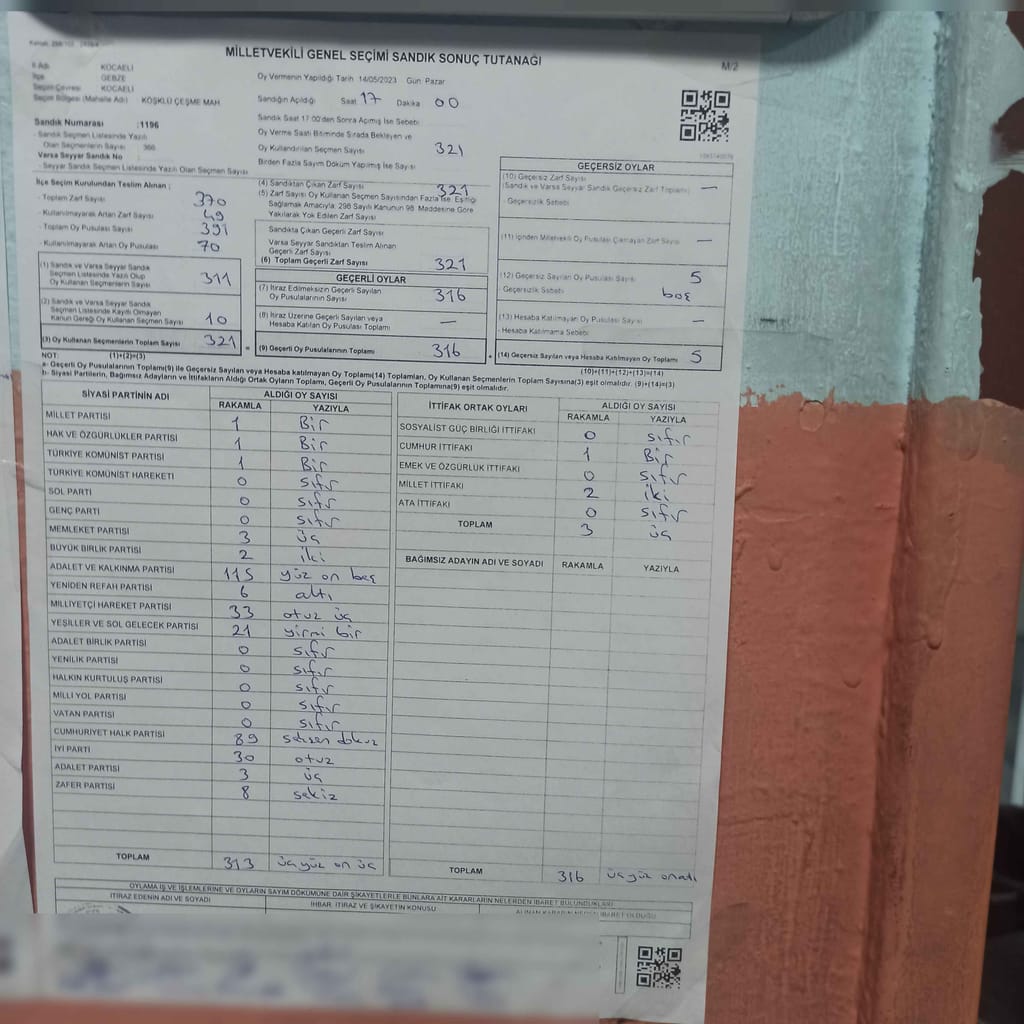 MİLLETVEKİLİ GENEL SEÇİMİ SANDIK SONUÇ TUTANAĞI
M/2
İl Adı KOCAELİ
İlçe GEBZE
Seçim Çevresi KOCAELİ
Seçim Bölgesi (Mahalle Adı) KÖŞKLÜ ÇEŞME MAH
Sandık Numarası :1196
- Sandık Seçmen Listesinde Yazılı
Olan Seçmenlerin Sayısı 366
Varsa Seyyar Sandık No
- Seyyar Sandık Seçmen Listesinde Yazılı Olan Seçmen Sayısı
Oy Vermenin Yapıldığı Tarih 14/05/2023 Gün Pazar
Sandığın Açıldığı Saat 17 Dakika 00
Sandık Saat 17:00'den Sonra Açımış İse Sebebi
Oy Verme Saati Bitiminde Sırada Bekleyen ve
Oy Kullandırılan Seçmen Sayısı 321
Birden Fazla Sayım Döküm Yapılmış İse Sayısı
İlçe Seçim Kurulundan Teslim Alınan :
- Toplam Zarf Sayısı 370
- Kullanılmayarak Artan Zarf Sayısı 49
- Toplam Oy Pusulası Sayısı 391
- Kullanılmayarak Artan Oy Pusulası 70
(1) Sandık ve Varsa Seyyar Sandık
Seçmen Listesinde Yazılı Olup
Oy Kullanan Seçmenlerin Sayısı 311
(2) Sandık ve Varsa Seyyar Sandık
Seçmen Listesinde Kayıtlı Olmayan
Kanun Gereği Oy Kullanan Seçmen Sayısı 10
(3) Oy Kullanan Seçmenlerin Toplam Sayısı 321
(1)+(2)=(3)
(4) Sandıktan Çıkan Zarf Sayısı 321
(5) Zarf Sayısı Oy Kullanan Seçmen Sayısından Fazla İse, Eşitliği
Sağlamak Amacıyla 298 Sayılı Kanunun 98. Maddesine Göre
Yakılarak Yok Edilen Zarf Sayısı
Sandıkta Çıkan Geçerli Zarf Sayısı
Varsa Seyyar Sandıktan Teslim Alınan
Geçerli Zarf Sayısı
(6) Toplam Geçerli Zarf Sayısı 321
GEÇERLİ OYLAR
(7) İtiraz Edilmeksizin Geçerli Sayılan
Oy Pusulalarının Sayısı 316
(8) İtiraz Üzerine Geçerli Sayılan veya
Hesaba Katılan Oy Pusulası Toplamı —
(9) Geçerli Oy Pusulalarının Toplamı 316
GEÇERSİZ OYLAR
(10) Geçersiz Zarf Sayısı
(Sandık ve Varsa Seyyar Sandık Geçersiz Zarf Toplamı) —
- Geçersizlik Sebebi
(11) İçinden Milletvekili Oy Pusulası Çıkmayan Zarf Sayısı —
(12) Geçersiz Sayılan Oy Pusulası Sayısı 5
Geçersizlik Sebebi boş
(13) Hesaba Katılmayan Oy Pusulası Sayısı —
- Hesaba Katılmama Sebebi
(14) Geçersiz Sayılan veya Hesaba Katılmayan Oy Toplamı 5
(10)+(11)+(12)+(13)=(14)
NOT:
a- Geçerli Oy Pusulaları Toplamı(9) ile Geçersiz Sayılan veya Hesaba katılmayan Oy Toplamı(14) Toplamları, Oy Kullanan Seçmenlerin Toplam Sayısına(3) eşit olmalıdır. (9)+(14)=(3)
b- Siyasi Partilerin, Bağımsız Adayların ve İttifakların Aldığı Ortak Oyların Toplamı, Geçerli Oy Pusulalarının Toplamına(9) eşit olmalıdır.
SİYASİ PARTİNİN ADI ALDIĞI OY SAYISI
RAKAMLA YAZIYLA
MİLLET PARTİSİ 1 Bir
HAK VE ÖZGÜRLÜKLER PARTİSİ 1 Bir
TÜRKİYE KOMÜNİST PARTİSİ 1 Bir
TÜRKİYE KOMÜNİST HAREKETİ 0 sıfır
SOL PARTİ 0 sıfır
GENÇ PARTİ 0 sıfır
MEMLEKET PARTİSİ 3 üç
BÜYÜK BİRLİK PARTİSİ 2 iki
ADALET VE KALKINMA PARTİSİ 115 yüz on beş
YENİDEN REFAH PARTİSİ 6 altı
MİLLİYETÇİ HAREKET PARTİSİ 33 otuz üç
YEŞİLLER VE SOL GELECEK PARTİSİ 21 yirmi bir
ADALET BİRLİK PARTİSİ 0 sıfır
YENİLİK PARTİSİ 0 sıfır
HALKIN KURTULUŞ PARTİSİ 0 sıfır
MİLLİ YOL PARTİSİ 0 sıfır
VATAN PARTİSİ 0 sıfır
CUMHURİYET HALK PARTİSİ 89 seksen dokuz
İYİ PARTİ 30 otuz
ADALET PARTİSİ 3 üç
ZAFER PARTİSİ 8 sekiz
TOPLAM 313 üçyüz on üç
İTTİFAK ORTAK OYLARI ALDIĞI OY SAYISI
RAKAMLA YAZIYLA
SOSYALİST GÜÇ BİRLİĞİ İTTİFAKI 0 sıfır
CUMHUR İTTİFAKI 1 Bir
EMEK VE ÖZGÜRLÜK İTTİFAKI 0 sıfır
MİLLET İTTİFAKI 2 iki
ATA İTTİFAKI 0 sıfır
TOPLAM 3 üç
BAĞIMSIZ ADAYIN ADI VE SOYADI RAKAMLA YAZIYLA
TOPLAM 316 üçyüz onaltı
OYLAMA İŞ VE İŞLEMLERİNE VE OYLARIN SAYIM DÖKÜMÜNE DAİR ŞİKAYETLERLE BUNLARA AİT KARARLARIN NELERDEN İBARET BULUNDUKLARI
İTİRAZ EDENİN ADI VE SOYADI
İHBAR, İTİRAZ VE ŞİKAYETİN KONUSU